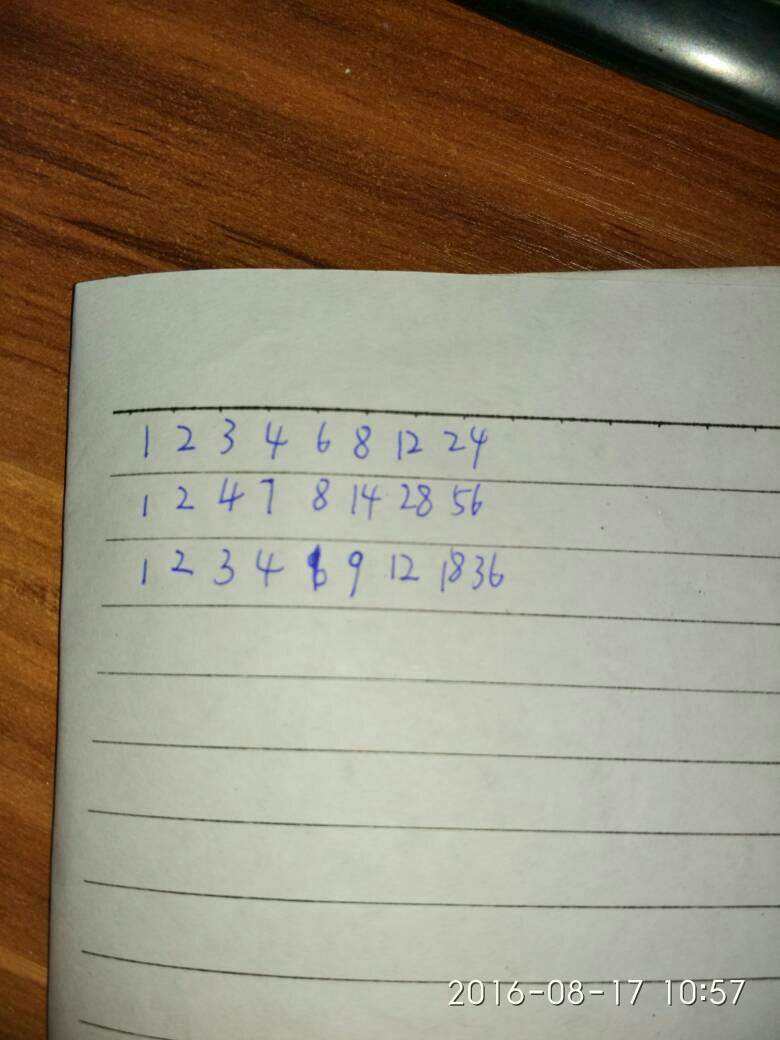 1 2 3 4 6 8 12 24
1 2 4 7 8 14 28 56
1 2 3 4 6 9 12 18 36
2016-08-17 10:57